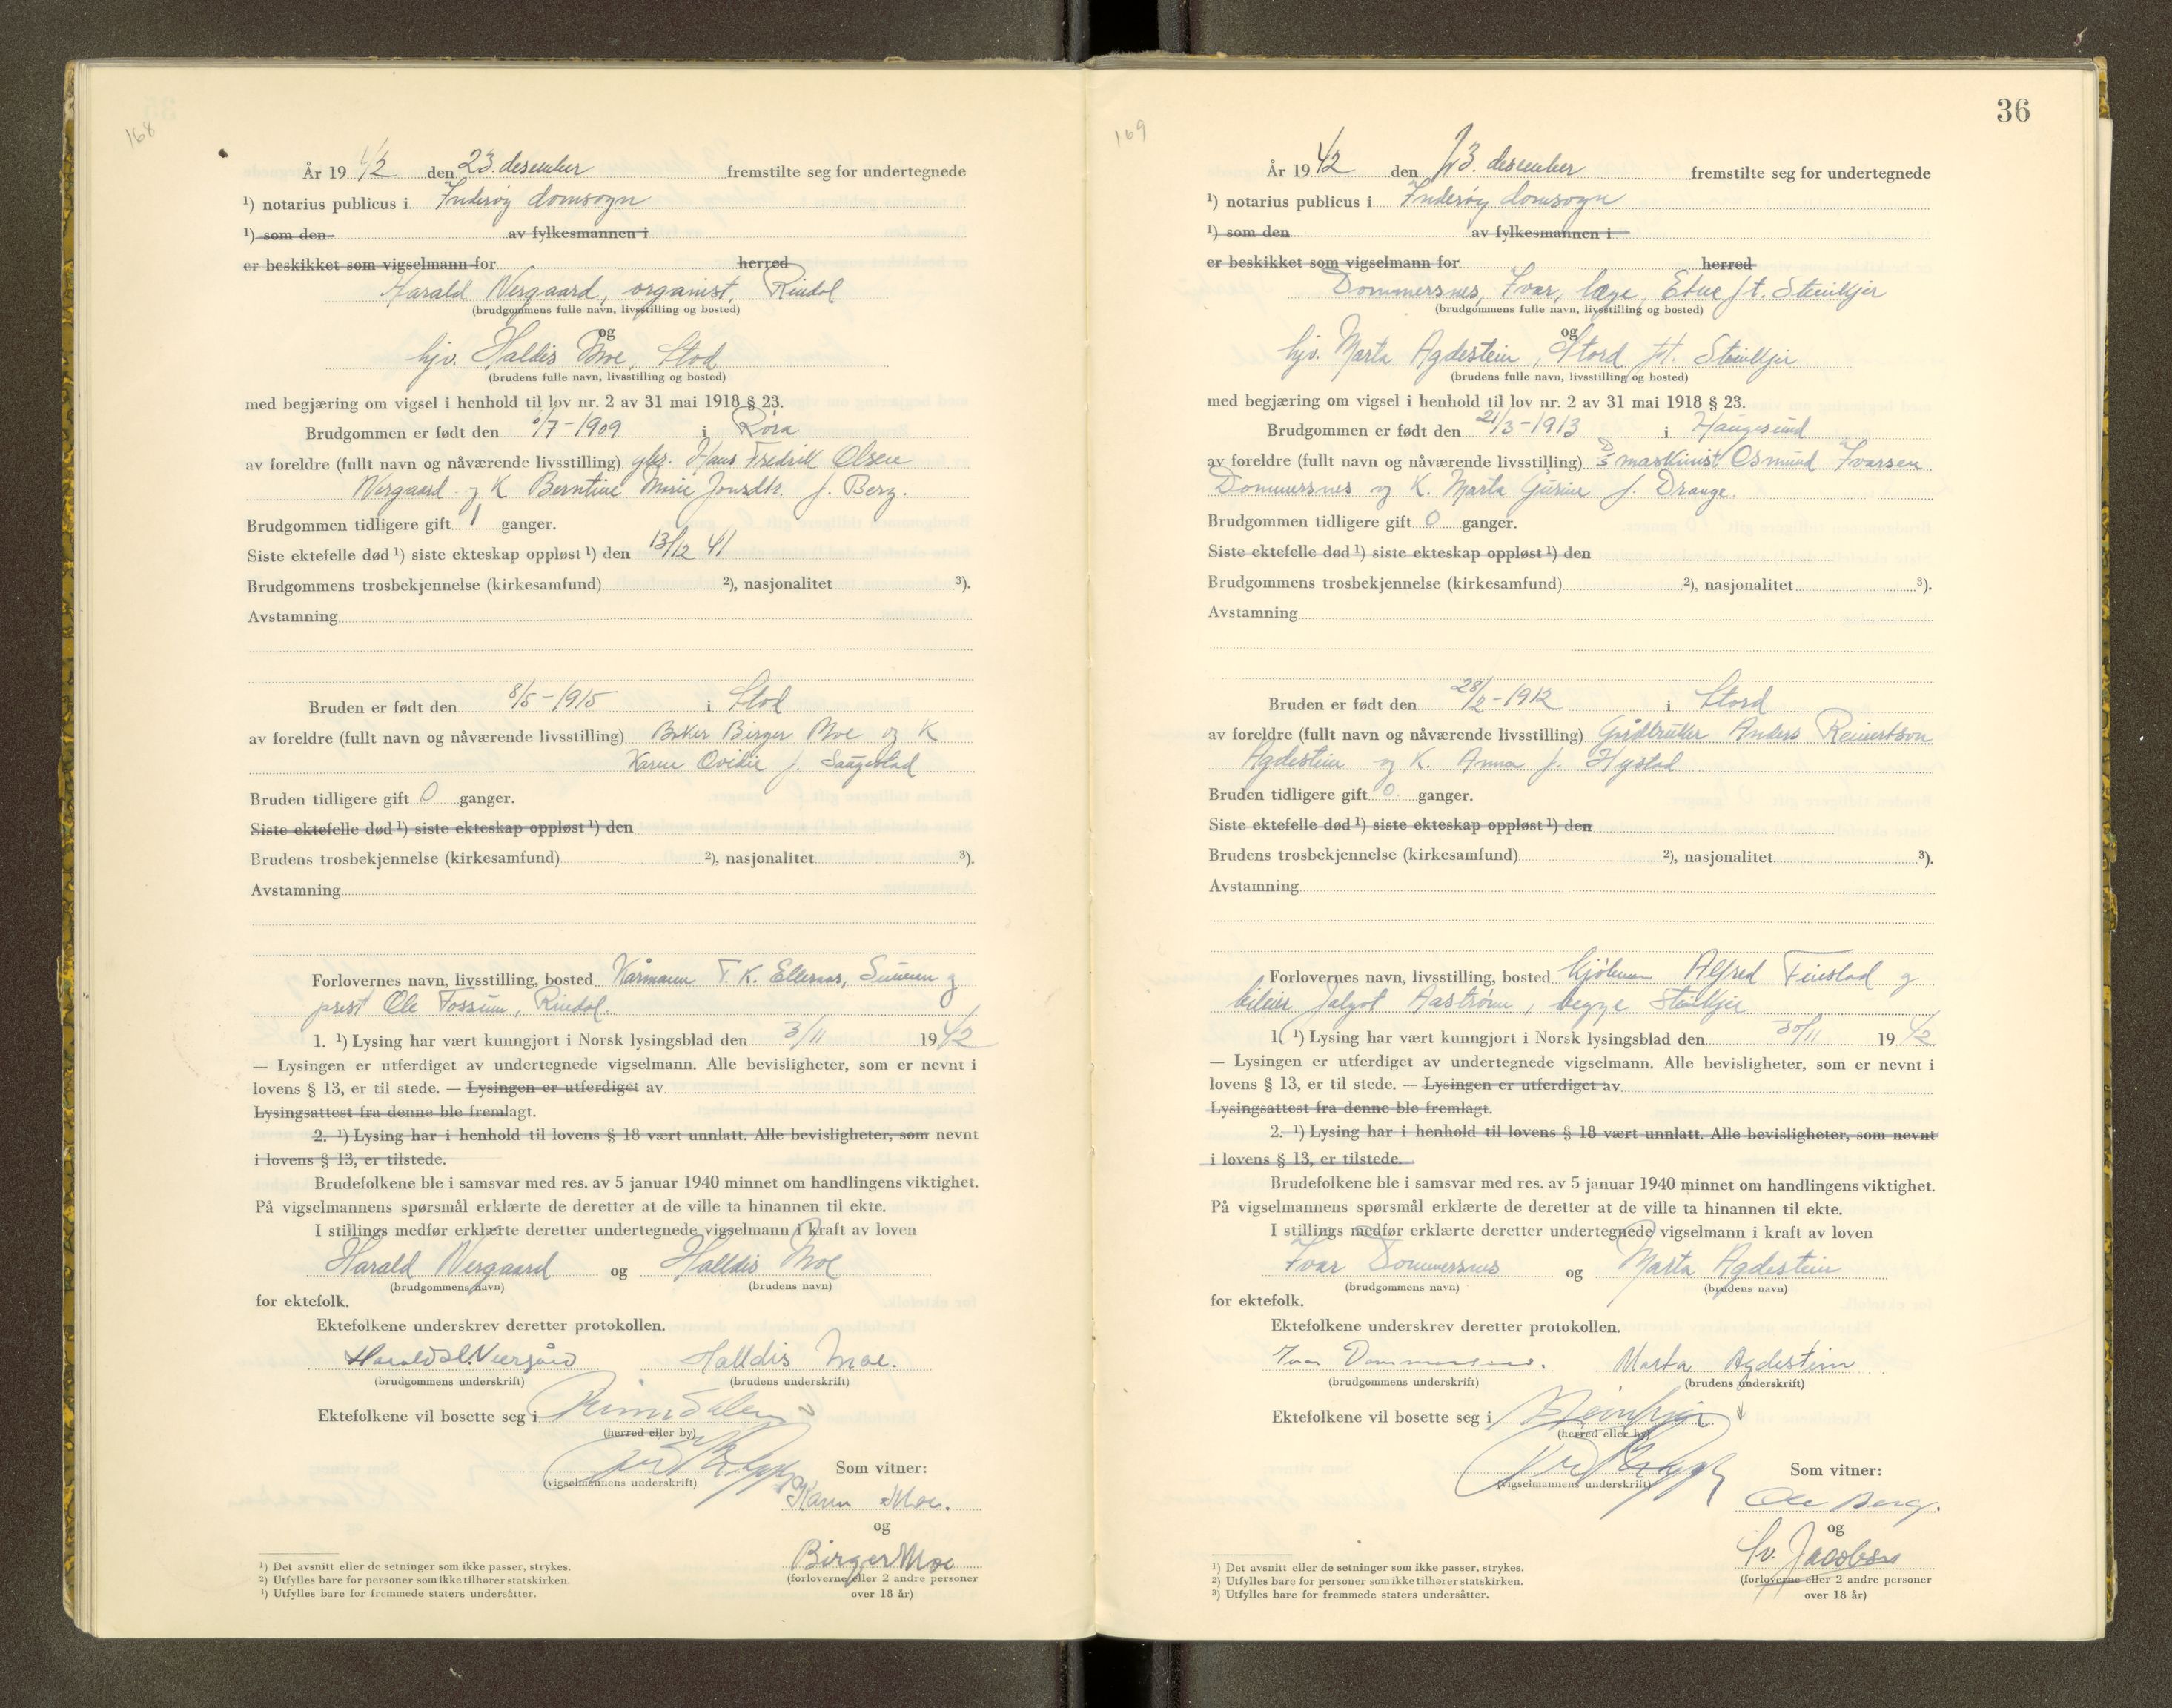 168
År 19 42 den 23. desember fremstilte seg for undertegnede
¹) notarius publicus i Inderøy domsogn
¹) som den av fylkesmannen i
er beskikket som vigselmann for herred
Harald Vergaard, organist, Rindal
(brudgommens fulle navn, livsstilling og bosted)
og
hjv. Haldis Moe, Stod
(brudens fulle navn, livsstilling og bosted)
med begjæring om vigsel i henhold til lov nr. 2 av 31 mai 1918 § 23.
Brudgommen er født den /7-1909 i Røra
av foreldre (fullt navn og nåværende livsstilling) gbr. Hans Fredrik Olsen
Vergaard og K Berntine Marie Jonsdtr. f. Berg.
Brudgommen tidligere gift 1 ganger.
Siste ektefelle død ¹) siste ekteskap oppløst ¹) den 13/12 41
Brudgommens trosbekjennelse (kirkesamfund) ²), nasjonalitet ³).
Avstamning
Bruden er født den 8/5-1915 i Stod
av foreldre (fullt navn og nåværende livsstilling) Baker Birger Moe og K
Karen Ovidie f. Saugestad
Bruden tidligere gift 0 ganger.
Siste ektefelle død ¹) siste ekteskap oppløst ¹) den
Brudens trosbekjennelse (kirkesamfund) ²), nasjonalitet ³).
Avstamning
Forlovernes navn, livsstilling, bosted T. K. Sunnan og
prest Ole Fossum, Rindal.
1. ¹) Lysing har vært kunngjort i Norsk lysingsblad den 3/11 1942
— Lysingen er utferdiget av undertegnede vigselmann. Alle bevisligheter, som er nevnt i
lovens § 13, er til stede. — Lysingen er utferdiget av
Lysingsattest fra denne ble fremlagt.
2. ¹) Lysing har i henhold til lovens § 18 vært unnlatt. Alle bevisligheter, som nevnt
i lovens § 13, er tilstede.
Brudefolkene ble i samsvar med res. av 5 januar 1940 minnet om handlingens viktighet.
På vigselmannens spørsmål erklærte de deretter at de ville ta hinannen til ekte.
I stillings medfør erklærte deretter undertegnede vigselmann i kraft av loven
Harald Vergaard og Halldis Moe
(brudgommens navn) (brudens navn)
for ektefolk.
Ektefolkene underskrev deretter protokollen.
Harald H. Vergård Halldis Moe.
(brudgommens underskrift) (brudens underskrift)
Ektefolkene vil bosette seg i Rinnsdalen
(herred eller by)
(vigselmannens underskrift)
Som vitner:
Karen Moe.
og
Birger Moe
(forloverne eller 2 andre personer
over 18 år)
¹) Det avsnitt eller de setninger som ikke passer, strykes.
²) Utfylles bare for personer som ikke tilhører statskirken.
³) Utfylles bare for fremmede staters undersåtter.
36
169
År 19 42 den 23. desember fremstilte seg for undertegnede
¹) notarius publicus i Inderøy domsogn
¹) som den av fylkesmannen i
er beskikket som vigselmann for herred
Dommersnes, Ivar, læge, Etne f.t. Steinkjer
(brudgommens fulle navn, livsstilling og bosted)
og
hjv. Marta Agdestein, Stord f.t. Steinkjer
(brudens fulle navn, livsstilling og bosted)
med begjæring om vigsel i henhold til lov nr. 2 av 31 mai 1918 § 23.
Brudgommen er født den 21/3-1913 i Haugesund
av foreldre (fullt navn og nåværende livsstilling) D/S maskinist Osmund Ivarsen
Dommersnes og K. Marta Gurine f. Drange.
Brudgommen tidligere gift 0 ganger.
Siste ektefelle død ¹) siste ekteskap oppløst ¹) den
Brudgommens trosbekjennelse (kirkesamfund) ²), nasjonalitet ³).
Avstamning
Bruden er født den 28/2-1912 i Stord
av foreldre (fullt navn og nåværende livsstilling) Gårdbruker Anders Reinertson
Agdestein og K. Anna f. Hystad
Bruden tidligere gift 0. ganger.
Siste ektefelle død ¹) siste ekteskap oppløst ¹) den
Brudens trosbekjennelse (kirkesamfund) ²), nasjonalitet ³).
Avstamning
Forlovernes navn, livsstilling, bosted kjøbmann Alfred Finstad og
bileier Aastrøm, begge Steinkjer
1. ¹) Lysing har vært kunngjort i Norsk lysingsblad den 30/11 1942
— Lysingen er utferdiget av undertegnede vigselmann. Alle bevisligheter, som er nevnt i
lovens § 13, er til stede. — Lysingen er utferdiget av
Lysingsattest fra denne ble fremlagt.
2. ¹) Lysing har i henhold til lovens § 18 vært unnlatt. Alle bevisligheter, som nevnt
i lovens § 13, er tilstede.
Brudefolkene ble i samsvar med res. av 5 januar 1940 minnet om handlingens viktighet.
På vigselmannens spørsmål erklærte de deretter at de ville ta hinannen til ekte.
I stillings medfør erklærte deretter undertegnede vigselmann i kraft av loven
Ivar Dommersnes og Marta Agdestein
(brudgommens navn) (brudens navn)
for ektefolk.
Ektefolkene underskrev deretter protokollen.
Ivar Dommersnes. Marta Agdestein
(brudgommens underskrift) (brudens underskrift)
Ektefolkene vil bosette seg i Steinkjer
(herred eller by)
(vigselmannens underskrift)
Som vitner:
Ole Berg.
og
Sv. Jacobsen
(forloverne eller 2 andre personer
over 18 år)
¹) Det avsnitt eller de setninger som ikke passer, strykes.
²) Utfylles bare for personer som ikke tilhører statskirken.
³) Utfylles bare for fremmede staters undersåtter.